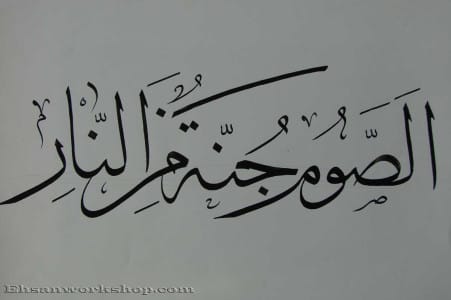 الصَّوم جُنّة مِنَ النّارِ
Ehsanworkshop.com